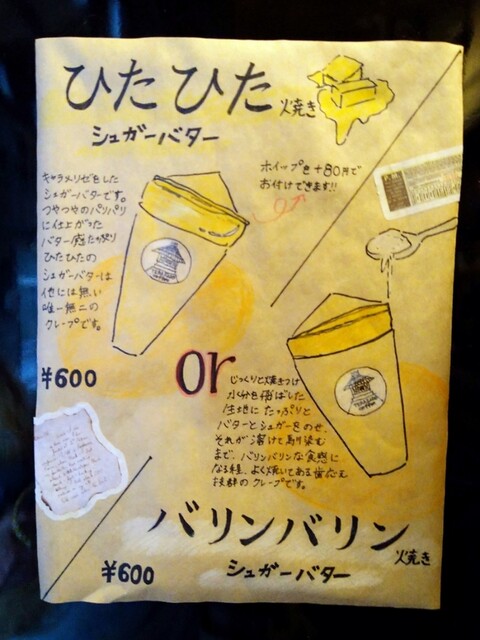 ひたひた焼き
シュガーバター
キャラメリゼをした
シュガーバターです。
つやつやのパリパリ
に仕上がった
バター感たっぷり
ひたひたの
シュガーバターは
他には無い
唯一無二の
クレープです。
¥600
ホイップを+80円で
お付けできます!!
or
じっくりと焼きつけ
水分を飛ばした
生地にたっぷりと
バターとシュガーをのせ、
それが溶けて馴染む
まで、バリンバリンな食感に
なる程、よく焼いてある歯応え
抜群のクレープです。
バリンバリン焼き
シュガーバター
¥600